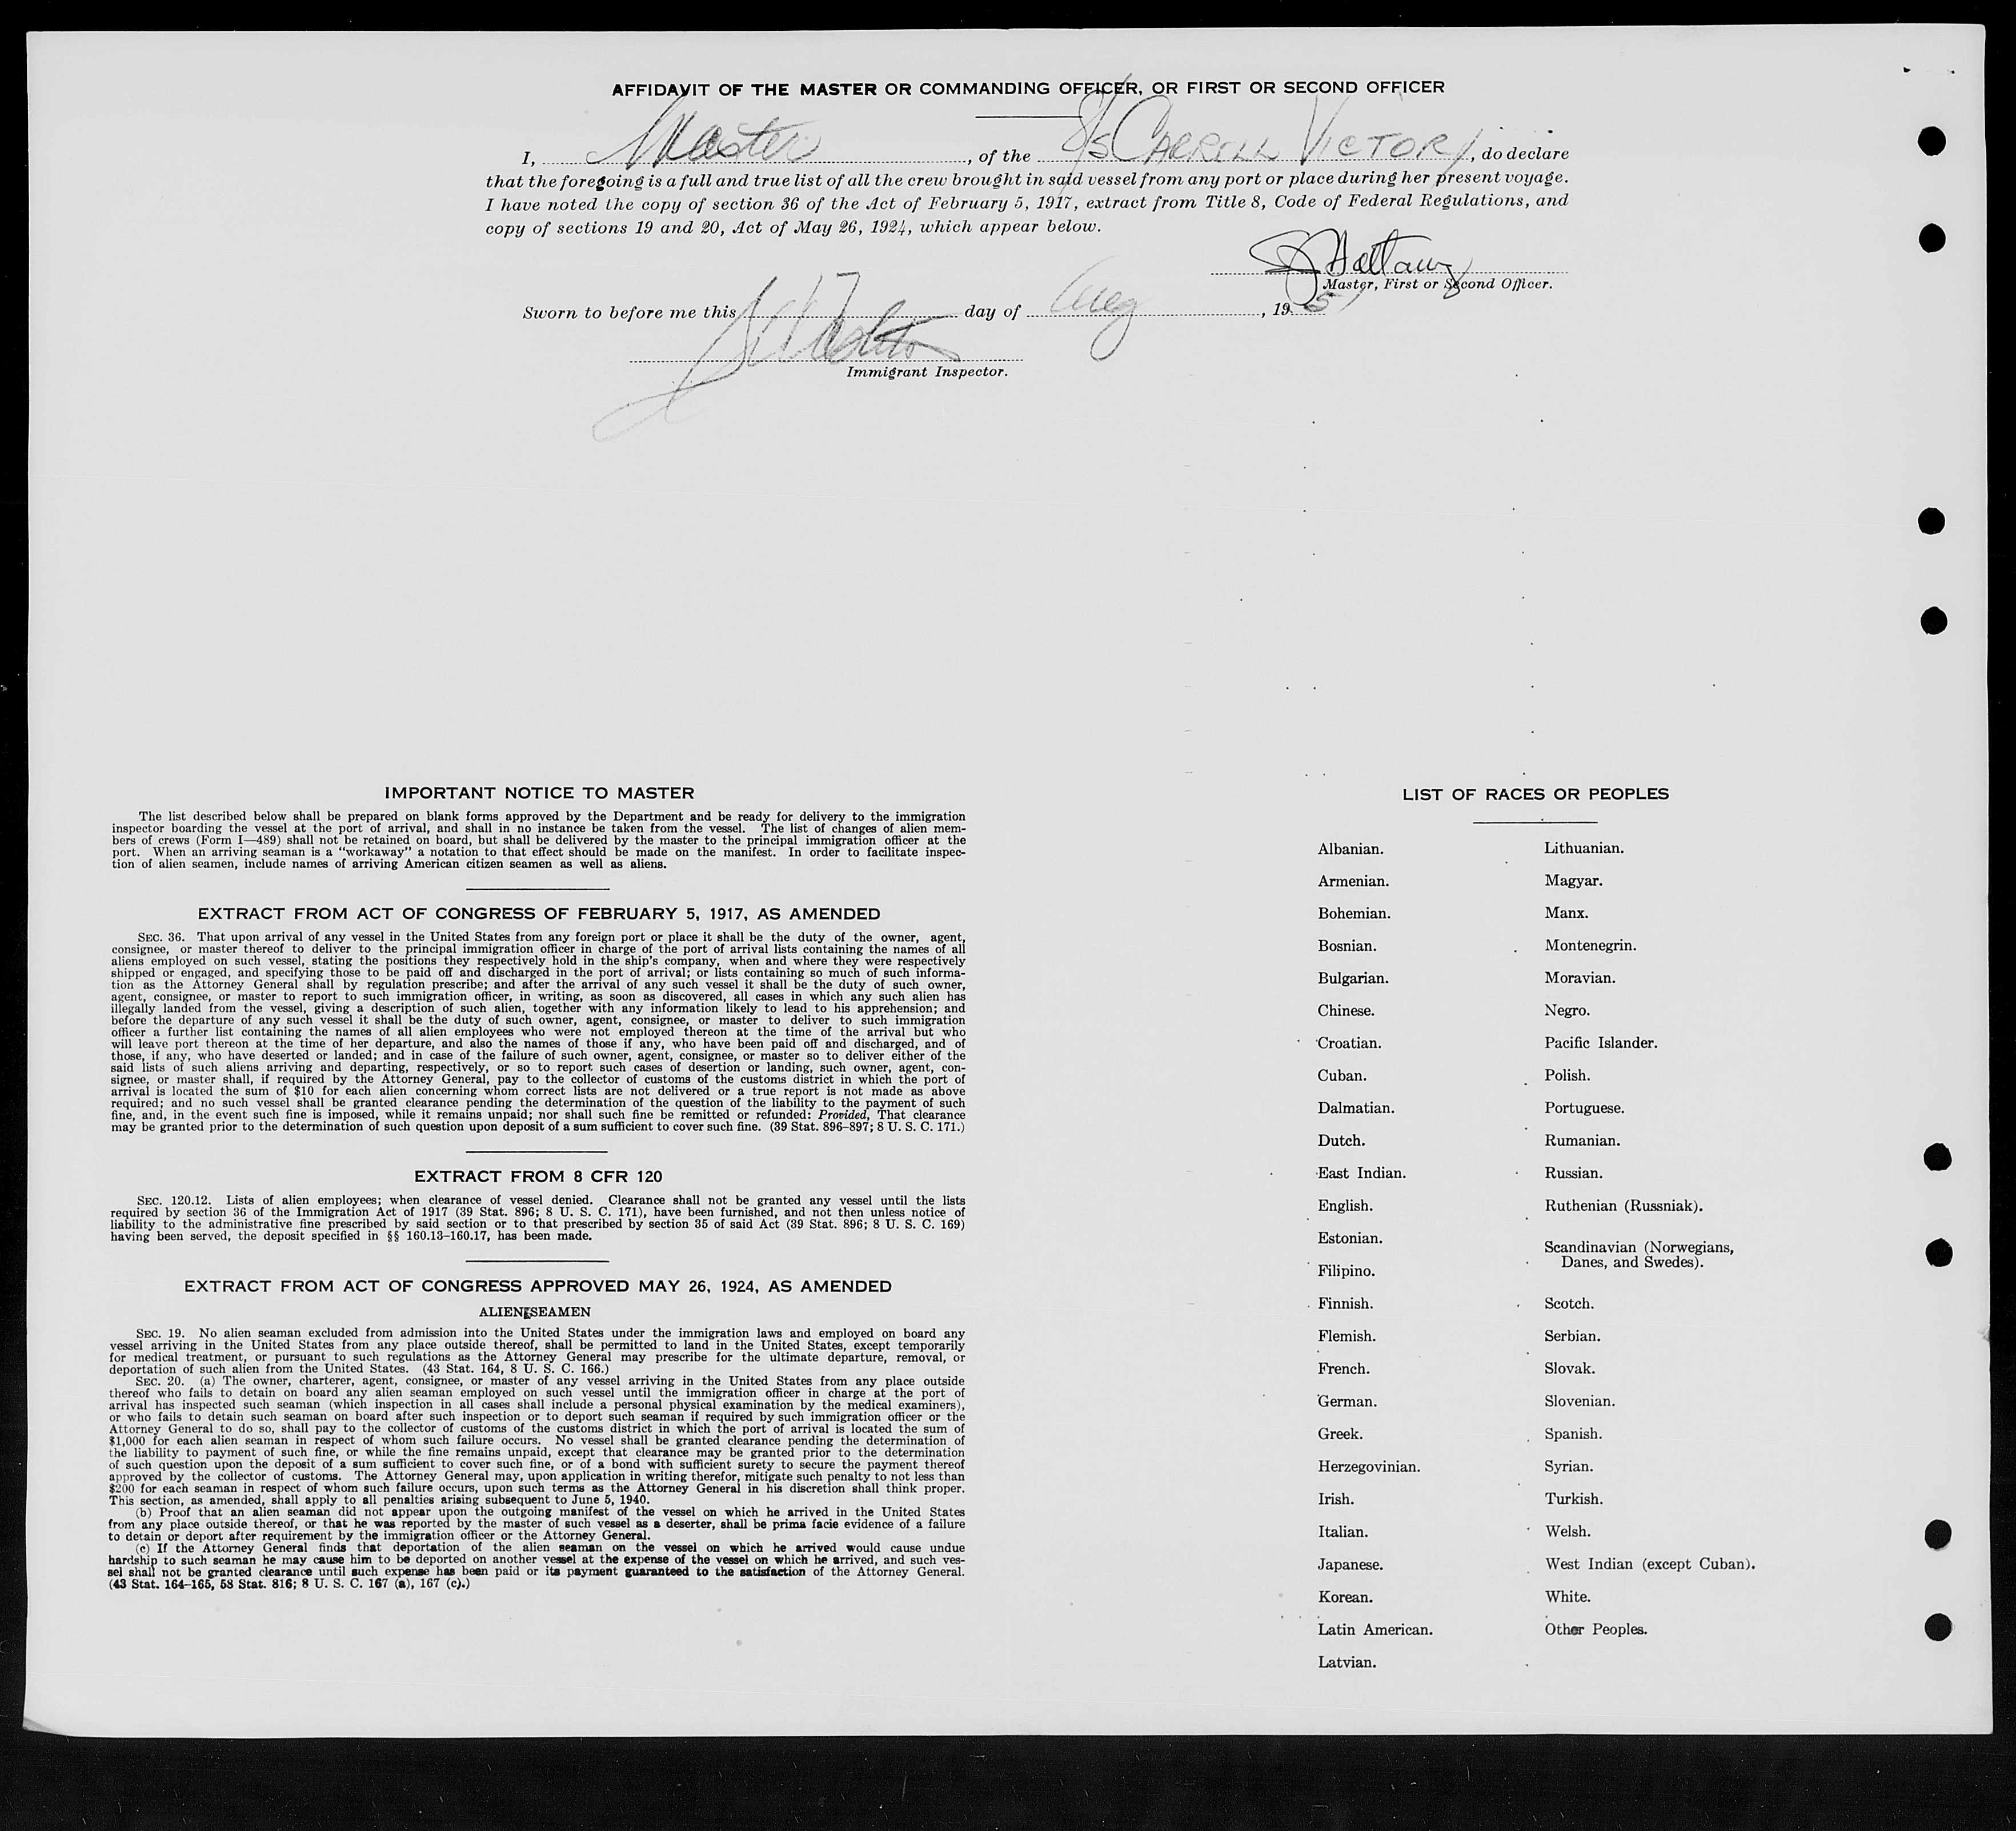 AFFIDAVIT OF THE MASTER OR COMMANDING OFFICER, OR FIRST OR SECOND OFFICER
I, Master, of the S/S CARROLL VICTORY, do declare
that the foregoing is a full and true list of all the crew brought in said vessel from any port or place during her present voyage.
I have noted the copy of section 36 of the Act of February 5, 1917, extract from Title 8, Code of Federal Regulations, and
copy of sections 19 and 20, Act of May 26, 1924, which appear below.
Master, First or Second Officer.
Sworn to before me this day of Aug, 1951
Immigrant Inspector.
IMPORTANT NOTICE TO MASTER
The list described below shall be prepared on blank forms approved by the Department and be ready for delivery to the immigration
inspector boarding the vessel at the port of arrival, and shall in no instance be taken from the vessel. The list of changes of alien mem-
bers of crews (Form I—489) shall not be retained on board, but shall be delivered by the master to the principal immigration officer at the
port. When an arriving seaman is a "workaway" a notation to that effect should be made on the manifest. In order to facilitate inspec-
tion of alien seamen, include names of arriving American citizen seamen as well as aliens.
EXTRACT FROM ACT OF CONGRESS OF FEBRUARY 5, 1917, AS AMENDED
SEC. 36. That upon arrival of any vessel in the United States from any foreign port or place it shall be the duty of the owner, agent,
consignee, or master thereof to deliver to the principal immigration officer in charge of the port of arrival lists containing the names of all
aliens employed on such vessel, stating the positions they respectively hold in the ship's company, when and where they were respectively
shipped or engaged, and specifying those to be paid off and discharged in the port of arrival; or lists containing so much of such informa-
tion as the Attorney General shall by regulation prescribe; and after the arrival of any such vessel it shall be the duty of such owner,
agent, consignee, or master to report to such immigration officer, in writing, as soon as discovered, all cases in which any such alien has
illegally landed from the vessel, giving a description of such alien, together with any information likely to lead to his apprehension; and
before the departure of any such vessel it shall be the duty of such owner, agent, consignee, or master to deliver to such immigration
officer a further list containing the names of all alien employees who were not employed thereon at the time of the arrival but who
will leave port thereon at the time of her departure, and also the names of those if any, who have been paid off and discharged, and of
those, if any, who have deserted or landed; and in case of the failure of such owner, agent, consignee, or master so to deliver either of the
said lists of such aliens arriving and departing, respectively, or so to report such cases of desertion or landing, such owner, agent, con-
signee, or master shall, if required by the Attorney General, pay to the collector of customs of the customs district in which the port of
arrival is located the sum of $10 for each alien concerning whom correct lists are not delivered or a true report is not made as above
required; and no such vessel shall be granted clearance pending the determination of the question of the liability to the payment of such
fine, and, in the event such fine is imposed, while it remains unpaid; nor shall such fine be remitted or refunded: Provided, That clearance
may be granted prior to the determination of such question upon deposit of a sum sufficient to cover such fine. (39 Stat. 896-897; 8 U. S. C. 171.)
EXTRACT FROM 8 CFR 120
SEC. 120.12. Lists of alien employees; when clearance of vessel denied. Clearance shall not be granted any vessel until the lists
required by section 36 of the Immigration Act of 1917 (39 Stat. 896; 8 U. S. C. 171), have been furnished, and not then unless notice of
liability to the administrative fine prescribed by said section or to that prescribed by section 35 of said Act (39 Stat. 896; 8 U. S. C. 169)
having been served, the deposit specified in §§ 160.13-160.17, has been made.
EXTRACT FROM ACT OF CONGRESS APPROVED MAY 26, 1924, AS AMENDED
ALIEN SEAMEN
SEC. 19. No alien seaman excluded from admission into the United States under the immigration laws and employed on board any
vessel arriving in the United States from any place outside thereof, shall be permitted to land in the United States, except temporarily
for medical treatment, or pursuant to such regulations as the Attorney General may prescribe for the ultimate departure, removal, or
deportation of such alien from the United States. (43 Stat. 164, 8 U. S. C. 166.)
SEC. 20. (a) The owner, charterer, agent, consignee, or master of any vessel arriving in the United States from any place outside
thereof who fails to detain on board any alien seaman employed on such vessel until the immigration officer in charge at the port of
arrival has inspected such seaman (which inspection in all cases shall include a personal physical examination by the medical examiners),
or who fails to detain such seaman on board after such inspection or to deport such seaman if required by such immigration officer or the
Attorney General to do so, shall pay to the collector of customs of the customs district in which the port of arrival is located the sum of
$1,000 for each alien seaman in respect of whom such failure occurs. No vessel shall be granted clearance pending the determination of
the liability to payment of such fine, or while the fine remains unpaid, except that clearance may be granted prior to the determination
of such question upon the deposit of a sum sufficient to cover such fine, or of a bond with sufficient surety to secure the payment thereof
approved by the collector of customs. The Attorney General may, upon application in writing therefor, mitigate such penalty to not less than
$200 for each seaman in respect of whom such failure occurs, upon such terms as the Attorney General in his discretion shall think proper.
This section, as amended, shall apply to all penalties arising subsequent to June 5, 1940.
(b) Proof that an alien seaman did not appear upon the outgoing manifest of the vessel on which he arrived in the United States
from any place outside thereof, or that he was reported by the master of such vessel as a deserter, shall be prima facie evidence of a failure
to detain or deport after requirement by the immigration officer or the Attorney General.
(c) If the Attorney General finds that deportation of the alien seaman on the vessel on which he arrived would cause undue
hardship to such seaman he may cause him to be deported on another vessel at the expense of the vessel on which he arrived, and such ves-
sel shall not be granted clearance until such expense has been paid or its payment guaranteed to the satisfaction of the Attorney General.
(43 Stat. 164-165, 58 Stat. 816; 8 U. S. C. 167 (a), 167 (c).)
LIST OF RACES OR PEOPLES
Albanian.
Armenian.
Bohemian.
Bosnian.
Bulgarian.
Chinese.
Croatian.
Cuban.
Dalmatian.
Dutch.
East Indian.
English.
Estonian.
Filipino.
Finnish.
Flemish.
French.
German.
Greek.
Herzegovinian.
Irish.
Italian.
Japanese.
Korean.
Latin American.
Latvian.
Lithuanian.
Magyar.
Manx.
Montenegrin.
Moravian.
Negro.
Pacific Islander.
Polish.
Portuguese.
Rumanian.
Russian.
Ruthenian (Russniak).
Scandinavian (Norwegians,
Danes, and Swedes).
Scotch.
Serbian.
Slovak.
Slovenian.
Spanish.
Syrian.
Turkish.
Welsh.
West Indian (except Cuban).
White.
Other Peoples.